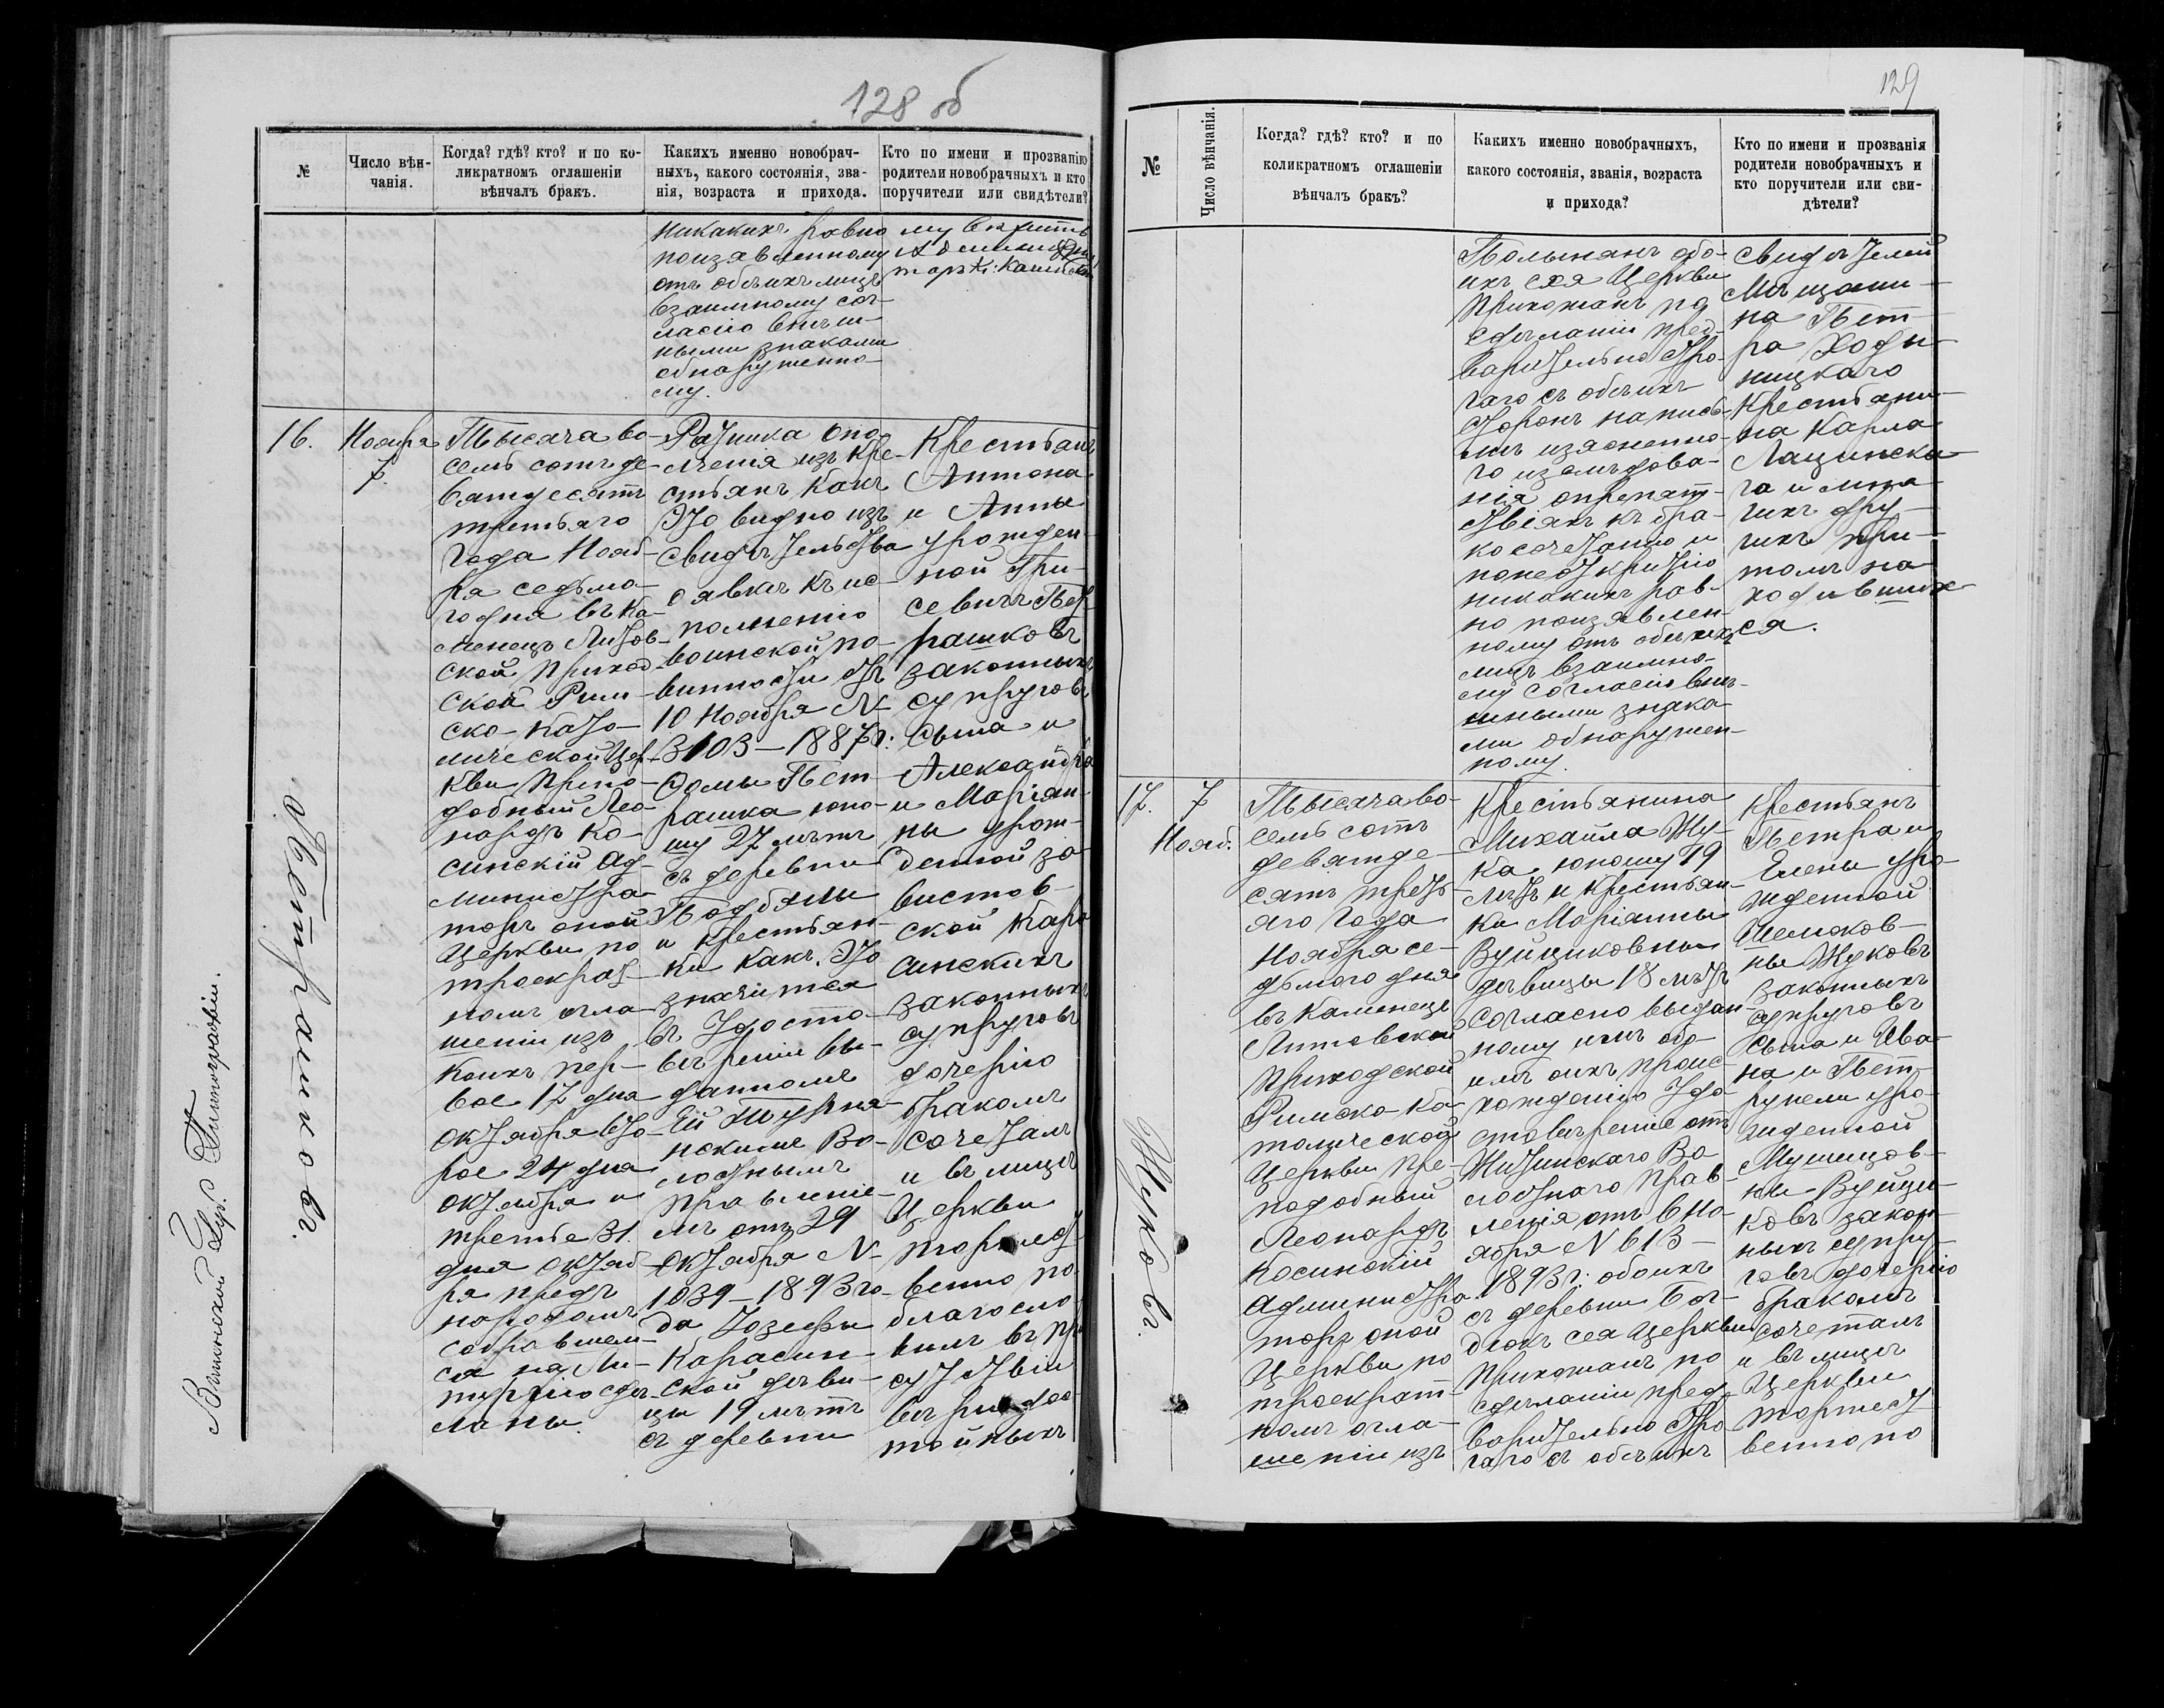 128 об
№
Число вѣн-
чанія.
Когда? гдѣ? кто? и по ко-
ликратномъ оглашеніи
вѣнчалъ бракъ.
Какихъ именно новобрач-
ныхъ, какого состоянія, зва-
нія, возраста и прихода.
Кто по имени и прозванію
родители новобрачныхъ и кто
поручители или свидѣтели?
никакихъ равно
поизявленному
отъ обѣихъ лицъ
взаимному сог-
ласію внѣш-
ными знаками
обнаруженно-
му.
16.
Ноября
7.
Тысяча во-
семь сотъ де-
вятдесятъ
третьяго
года Нояб-
ря седьма-
го дня въ Ка-
менецъ Литов-
ской приход-
ской Рим-
ско-Като-
лической Цер-
кви Препо-
добный Лео-
нардъ Ко-
синскій Ад-
министра-
торъ оной
Церкви по
троекрат-
номъ огла-
шеніи изъ
коихъ пер-
вое 17 дня
октября вто-
рое 24 дня
октября и
третье 31.
дня октяб-
ря предъ
народомъ
собравшем-
ся на Ли-
тургію сдѣ-
ланы.
Ратника опо-
лченія изъ кре-
стьянъ какъ
это видно изъ
свидѣтельства
о явкѣ къ ис-
полненію
воинской по-
винности отъ
10 Ноября №
3103—1887г:
Фомы Пет-
рашка юно-
шу 27 лѣтъ
съ деревни
Подбялы
и крестьян-
ки какъ это
значится
въ удосто-
вѣреніи вы-
данномъ
ей
нскимъ Во-
лостнымъ
правленіе-
мъ отъ 29
октября №
1039—1893 го-
да Іозефы
Карасин-
ской дѣви-
цы 19 лѣтъ
съ деревни
Крестьянъ
Антона
и Анны
урожден-
ной Гри-
севичъ Пет-
рашковъ
законныхъ
супруговъ
сына и
Александра
и Маріян-
ны урож-
денной За-
вистов-
ской Кара-
синскихъ
законныхъ
супруговъ
дочерію
бракомъ
сочеталъ
и въ лицѣ
Церкви
торжест-
венно по-
благосло-
вилъ въ при-
сутствіи
вѣридос-
тойныхъ
Петрашковъ.
129
№
Число вѣнчанія.
Когда? гдѣ? кто? и по
коликратномъ оглашеніи
вѣнчалъ бракъ?
Какихъ именно новобрачныхъ,
какого состоянія, званія, возраста
и прихода?
Кто по имени и прозванія
родители новобрачныхъ и
кто поручители или сви-
дѣтели?
обо-
ихъ сея Церкви
прихожанъ по
сдѣланіи пред-
варительно стро-
гаго съ обѣихъ
сторонъ на пись-
мѣ изясненно-
го изслѣдова-
нія опрепят-
ствіяхъ къ бра-
косочетанію и
понеоткрытію
никакихъ рав-
но поизявлен-
ному отъ обѣихъ
лицъ взаимно-
му согласію внѣ-
шными знака-
ми обнаружен-
ному.
Свидѣтелей
Мѣщани-
на Пет-
ра Ходы-
ницкаго
Крестьяни-
на Карла
Лащинска-
го и мно-
гихъ дру-
гихъ при-
томъ на-
ходившихъ-
ся.
17.
7
Нояб.
Тысяча во-
семь сотъ
девятде-
сятъ треть-
яго года
Ноября се-
дьмого дня
въ Каменецъ
Литовской
Приходской
Римско-Ка-
толической
Церкви Пре-
подобный
Леонардъ
Косинскій
Администра-
торъ оной
Церкви по
троекрат-
номъ огла-
шеніи изъ
Крестьянина
Михаила Жу-
ка юношу 19
лѣтъ и крестьян-
ки Маріанны
Вуйциковны
дѣвицы 18 лѣтъ
согласно выдан-
ному имъ обо-
имъ ихъ проис-
хожденію удо-
стовѣреніе отъ
Волостнаго Прав-
ленія отъ 6 Но-
ября №613—
1893г: обоихъ
съ деревни
сея Церкви
прихожанъ по
сдѣланіи пред-
варительно стро-
гаго съ обѣихъ
Крестьянъ
Петра и
Елены уро-
жденной
ны Жуковъ
законныхъ
супруговъ
сына и Ива-
на и Пет-
рунели уро-
жденной
ны Вуйци-
ковъ закон-
ныхъ супру-
говъ дочерію
бракомъ
сочеталъ
и въ лицѣ
Церкви
торжест-
венно по
Жуковъ.
Виленской Губ. Типографіи.